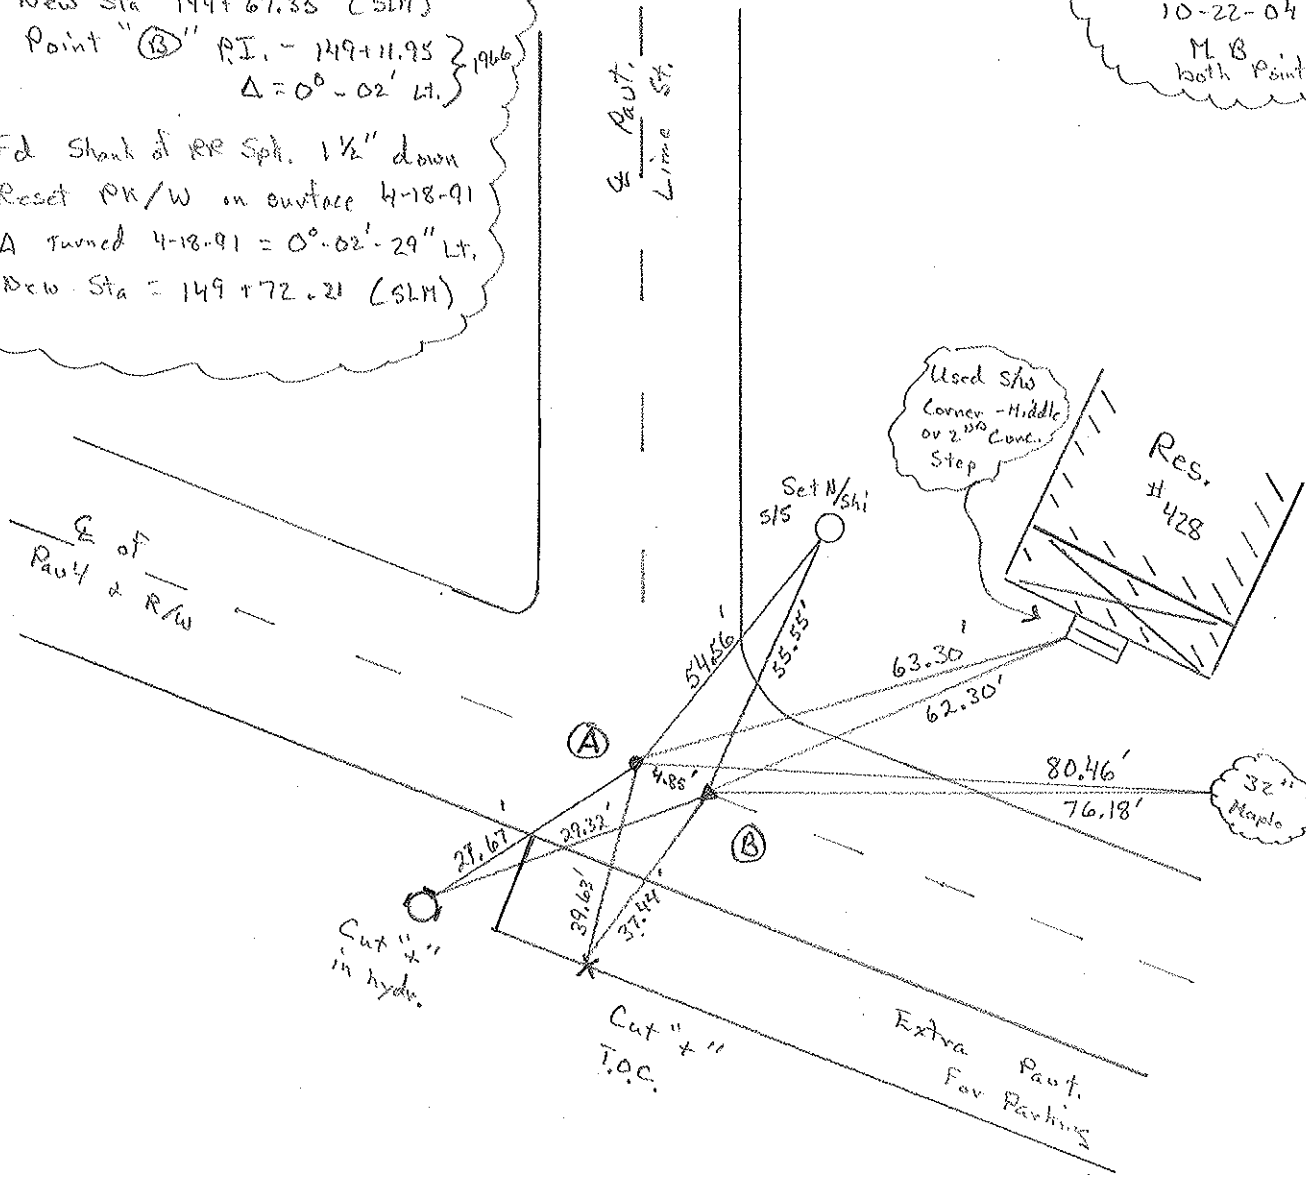 New Sta 149+67.35 (SLM)
Point "Ⓑ" P.I. - 149+11.95
Δ = 0° - 02' Lt.
1966
Fd Shank of RR Spk. 1½" down
Reset PK/W on surface 4-18-91
Δ Turned 4-18-91 = 0°-02'-29" Lt.
New Sta = 149+72.21 (SLM)
℄ Pavt.
Lime St.
10-22-04
M B
both Point
Used S/W
Corner - Middle
or 2ND Conc.
Step
Res.
#428
Set N/Shi
S/S
℄ of
Pav't & R/W
54.56'
55.55'
63.30'
62.30'
Ⓐ
4.85'
80.46'
76.18'
32"
Maple
Ⓑ
27.67'
29.32'
39.63'
37.44'
Cut "x"
in hydr.
Cut "x"
T.O.C.
Extra Pavt.
For Parking